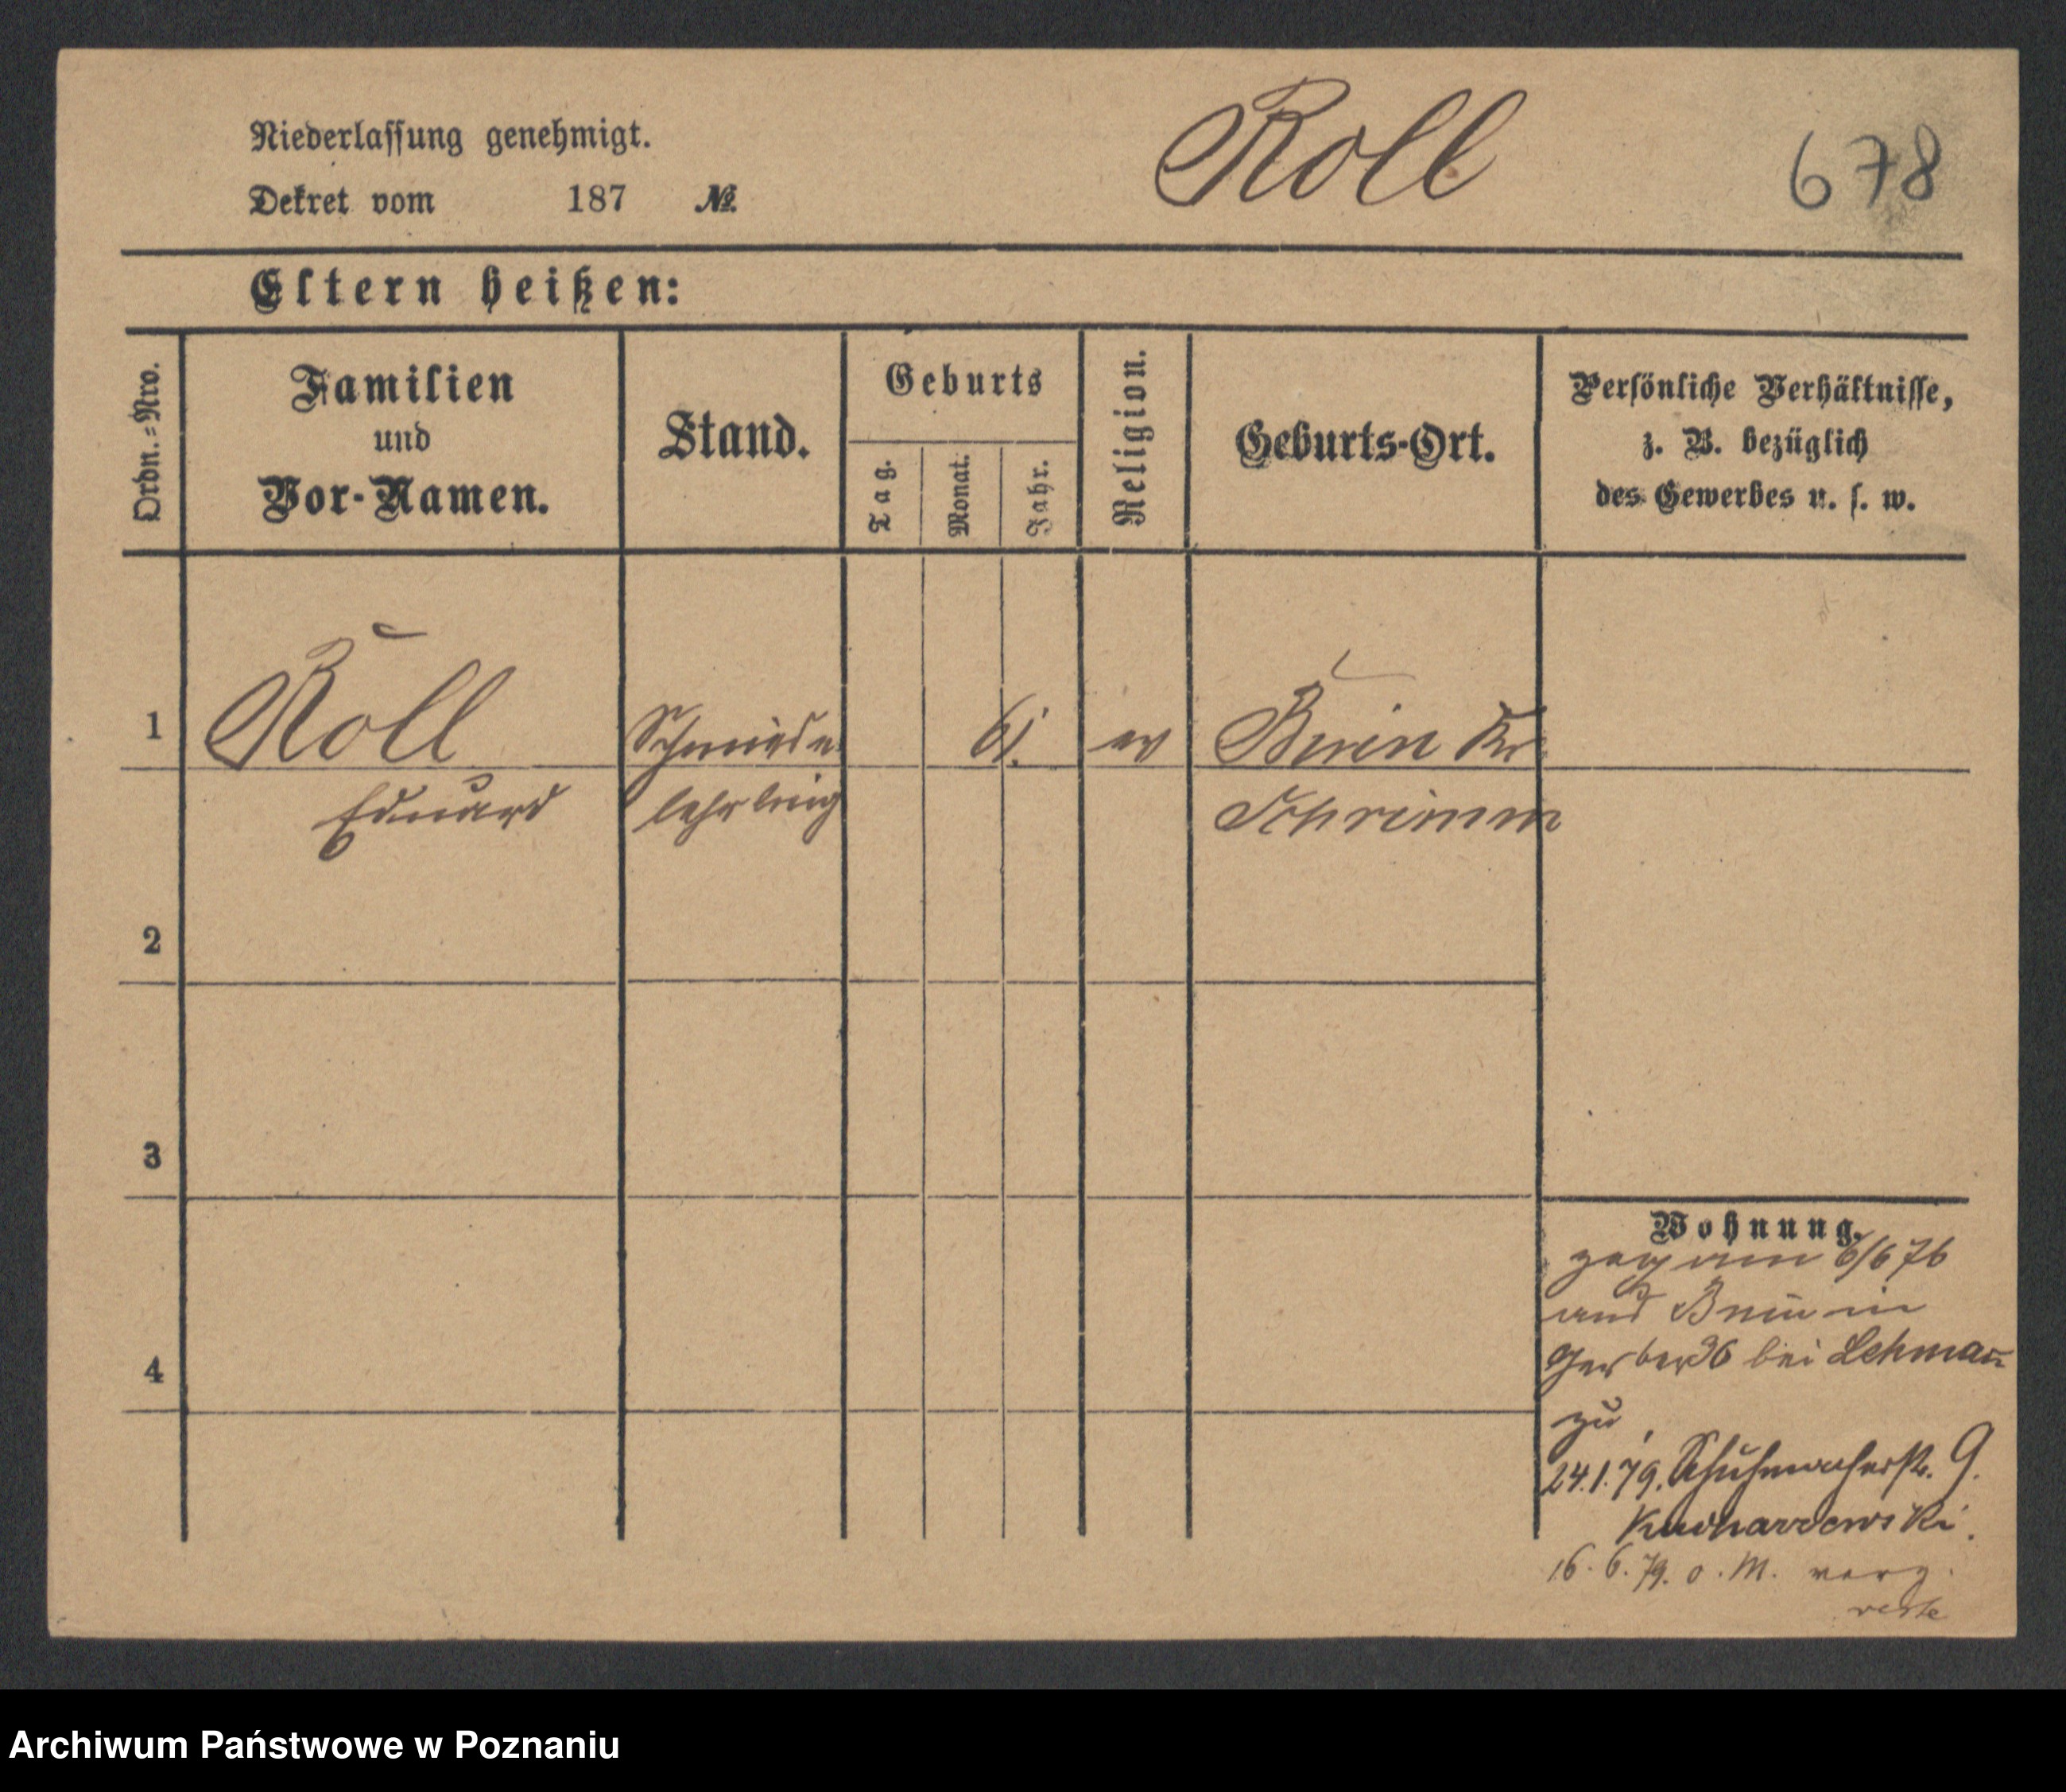 Niederlassung genehmigt.
Roll
678
Dekret vom 187 №
Eltern heißen:
Ordn.-Nro.
Familien
und
Vor-Namen.
Stand.
Geburts
Tag.
Monat.
Jahr.
Religion.
Geburts-Ort.
Persönliche Verhältnisse,
z. B. bezüglich
des Gewerbes u. s. w.
1
Roll
Eduard
Schmiede
lehrling
61.
ev
Bnin Kr
Schrimm
2
3
4
Wohnung.
zog am 6/6 76
aus Bnin in
Gerber 36 bei Lehman̅
zu
24.1.79. Schuhmacherstr. 9.
16. 6. 79. o. M. verz.
Archiwum Państwowe w Poznaniu